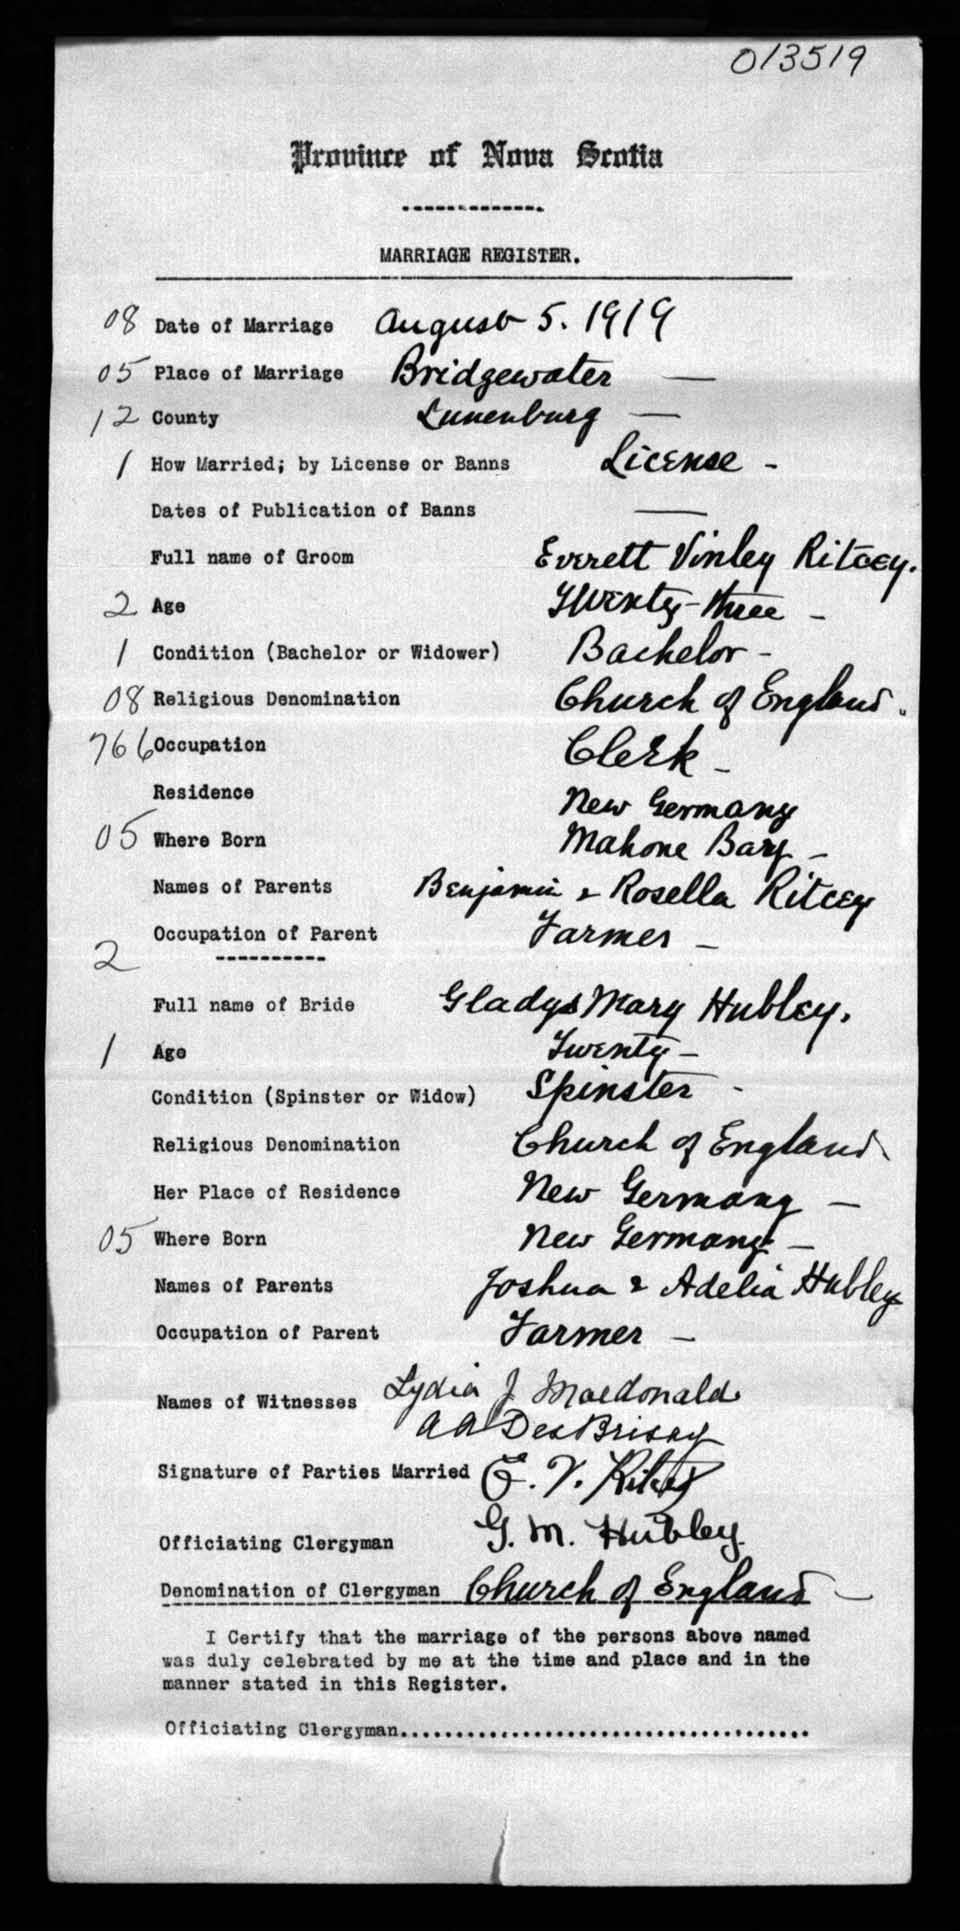 013519
Province of Nova Scotia
MARRIAGE REGISTER.
08 Date of Marriage August 5. 1919
05 Place of Marriage Bridgewater —
12 County Lunenburg —
1 How Married; by License or Banns License -
Dates of Publication of Banns —
Full name of Groom Everett Vinley Ritcey.
2 Age Twenty-three -
1 Condition (Bachelor or Widower) Bachelor -
08 Religious Denomination Church of England.
766 Occupation Clerk -
Residence New Germany
05 Where Born Mahone Bay -
Names of Parents Benjamin & Rosella Ritcey
Occupation of Parent Farmer -
2
Full name of Bride Gladys Mary Hubley.
1 Age Twenty -
Condition (Spinster or Widow) Spinster -
Religious Denomination Church of England
Her Place of Residence New Germany —
05 Where Born New Germany —
Names of Parents Joshua & Adelia Hubley
Occupation of Parent Farmer -
Names of Witnesses Lydia J Macdonald
A A DesBrisay
Signature of Parties Married E. V. Ritcey
G. M. Hubley
Officiating Clergyman
Denomination of Clergyman Church of England —
I Certify that the marriage of the persons above named
was duly celebrated by me at the time and place and in the
manner stated in this Register.
Officiating Clergyman......................................